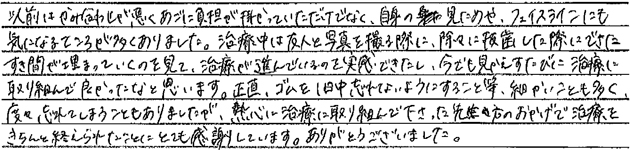 以前はかみ合わせが悪くあごに負担が掛かっていただけでなく、自身の見ためや、フェイスラインにも
気になるところが多くありました。治療中は友人と写真を撮る際に、徐々に抜歯した際にできた
すき間が埋まっていくのを見て、治療が進んでいるのを実感できたし、今でも見かえすたびに治療に
取り組んで良かったなと思います。正直、ゴムを1日中忘れないようにすること等、細かいことも多く、
度々忘れてしまうこともありましたが、熱心に治療に取り組んで下さった先生方のおかげで治療を
きちんと終えられたことにとても感謝しています。ありがとうございました。